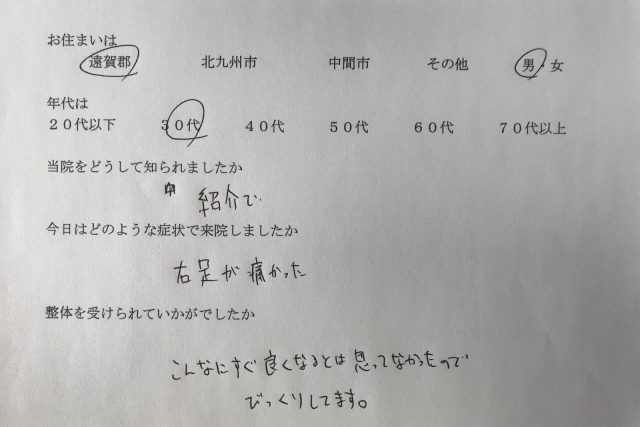 お住まいは
遠賀郡 北九州市 中間市 その他 男・女
年代は
20代以下 30代 40代 50代 60代 70代以上
当院をどうして知られましたか
紹介で
今日はどのような症状で来院しましたか
右足が痛かった
整体を受けられていかがでしたか
こんなにすぐ良くなるとは思ってなかったので
びっくりしてます。